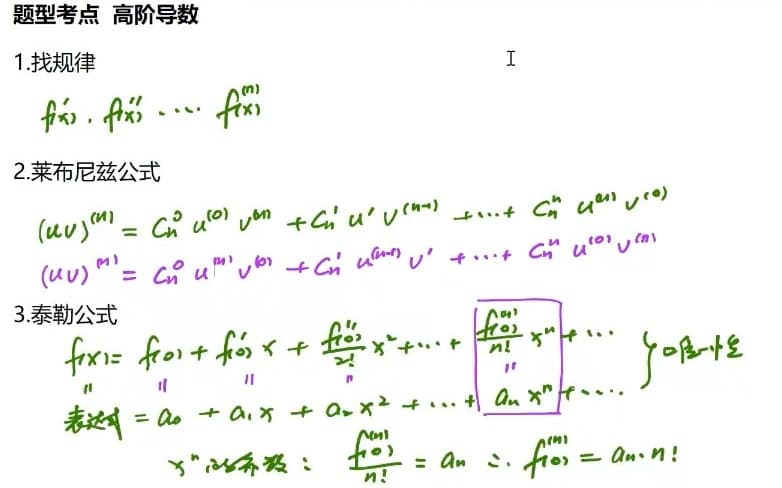 题型考点 高阶导数
1.找规律
f'(x), f''(x) ⋯ f⁽ⁿ⁾(x)
2.莱布尼兹公式
(uv)⁽ⁿ⁾ = Cₙ⁰ u⁽⁰⁾ v⁽ⁿ⁾ + Cₙ¹ u' v⁽ⁿ⁻¹⁾ + ⋯ + Cₙⁿ u⁽ⁿ⁾ v⁽⁰⁾
(uv)⁽ⁿ⁾ = Cₙ⁰ u⁽ⁿ⁾ v⁽⁰⁾ + Cₙ¹ u⁽ⁿ⁻¹⁾ v' + ⋯ + Cₙⁿ u⁽⁰⁾ v⁽ⁿ⁾
3.泰勒公式
f(x) = f(0) + f'(0) x + f''(0)/2! x² + ⋯ + f⁽ⁿ⁾(0)/n! xⁿ + ⋯
唯一性
表达式 = a₀ + a₁ x + a₂ x² + ⋯ + aₙ xⁿ + ⋯
xⁿ的系数: f⁽ⁿ⁾(0)/n! = aₙ ∴ f⁽ⁿ⁾(0) = aₙ · n!